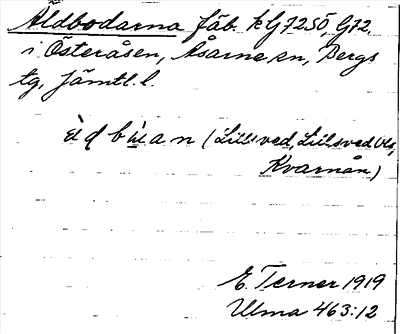 Äldbodarna fäb. kG7250, G72.
i Österåsen, Åsarne sn, Bergs
tg, Jämtl. l.
àd bùan (Lillsved, Lillsved Vls,
Kvarnån)
E. Terner 1919
Ulma 463:12